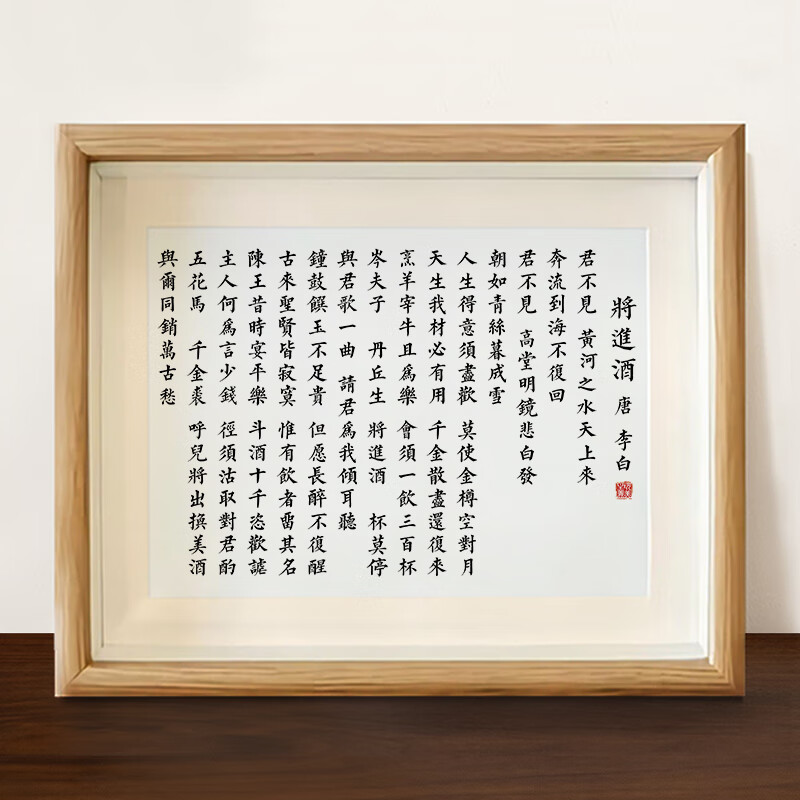 將進酒 唐 李白
君不見 黃河之水天上來
奔流到海不復回
君不見 高堂明鏡悲白發
朝如青絲暮成雪
人生得意須盡歡 莫使金樽空對月
天生我材必有用 千金散盡還復來
烹羊宰牛且爲樂 會須一飲三百杯
岑夫子 丹丘生 將進酒 杯莫停
與君歌一曲 請君爲我傾耳聽
鐘鼓饌玉不足貴 但愿長醉不復醒
古來聖賢皆寂寞 惟有飲者留其名
陳王昔時宴平樂 斗酒十千恣歡謔
主人何爲言少錢 徑須沽取對君酌
五花馬 千金裘 呼兒將出換美酒
與爾同銷萬古愁